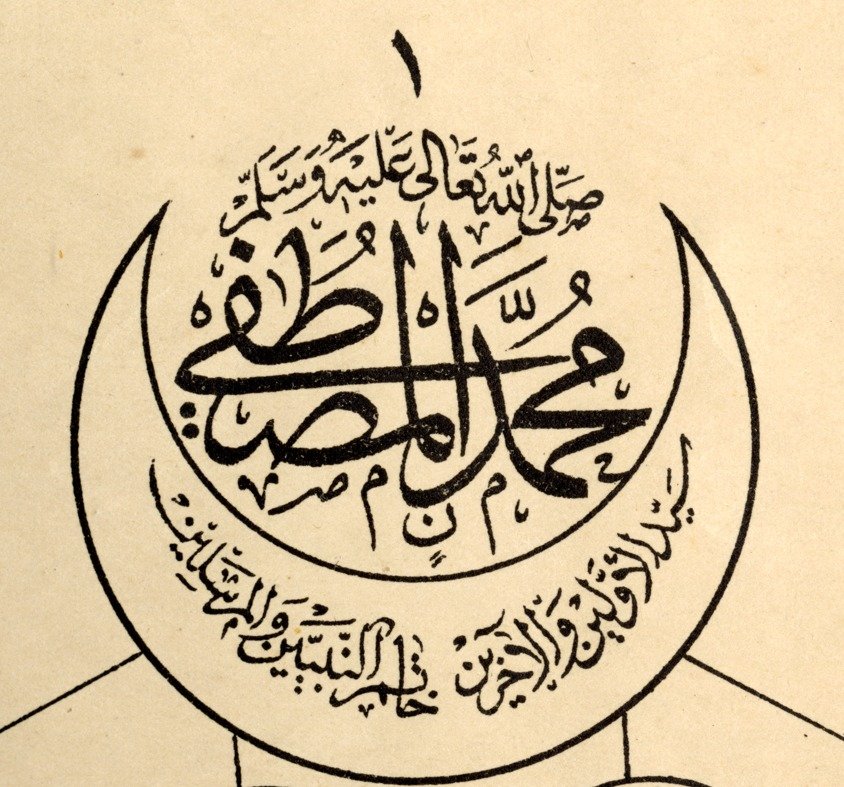 ١
صَلَّى اللهُ تَعَالَى عَلَيْهِ وَسَلَّمَ
مُحَمَّد المُصْطَفٰى
سَيِّدُ الأَوَّلِينَ وَالآخِرِينَ خَاتَمُ النَّبِيِّينَ وَالمُرْسَلِينَ